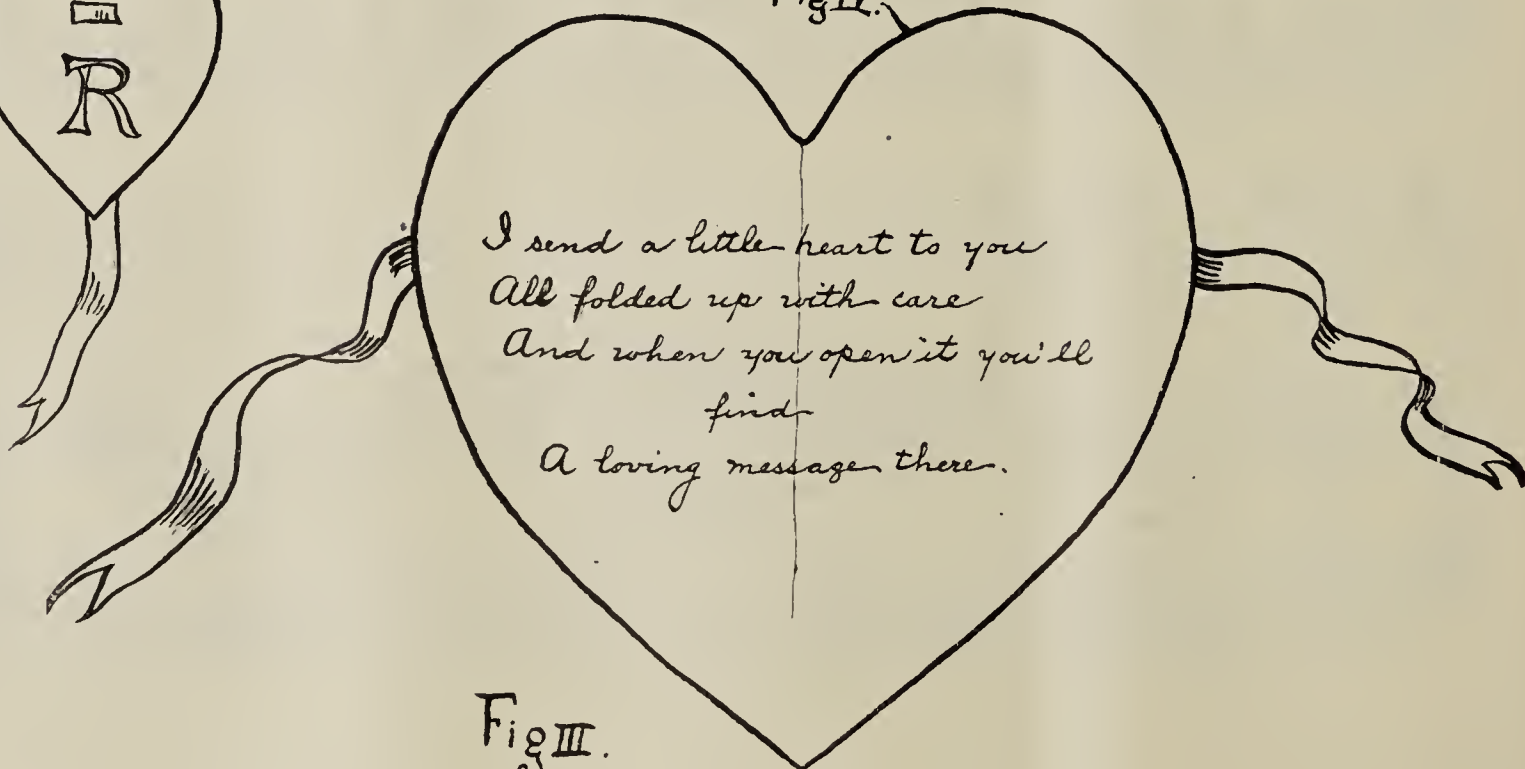 Fig II.
R
I send a little heart to you
All folded up with care
And when you open it you'll
find
A loving message there.
Fig III.